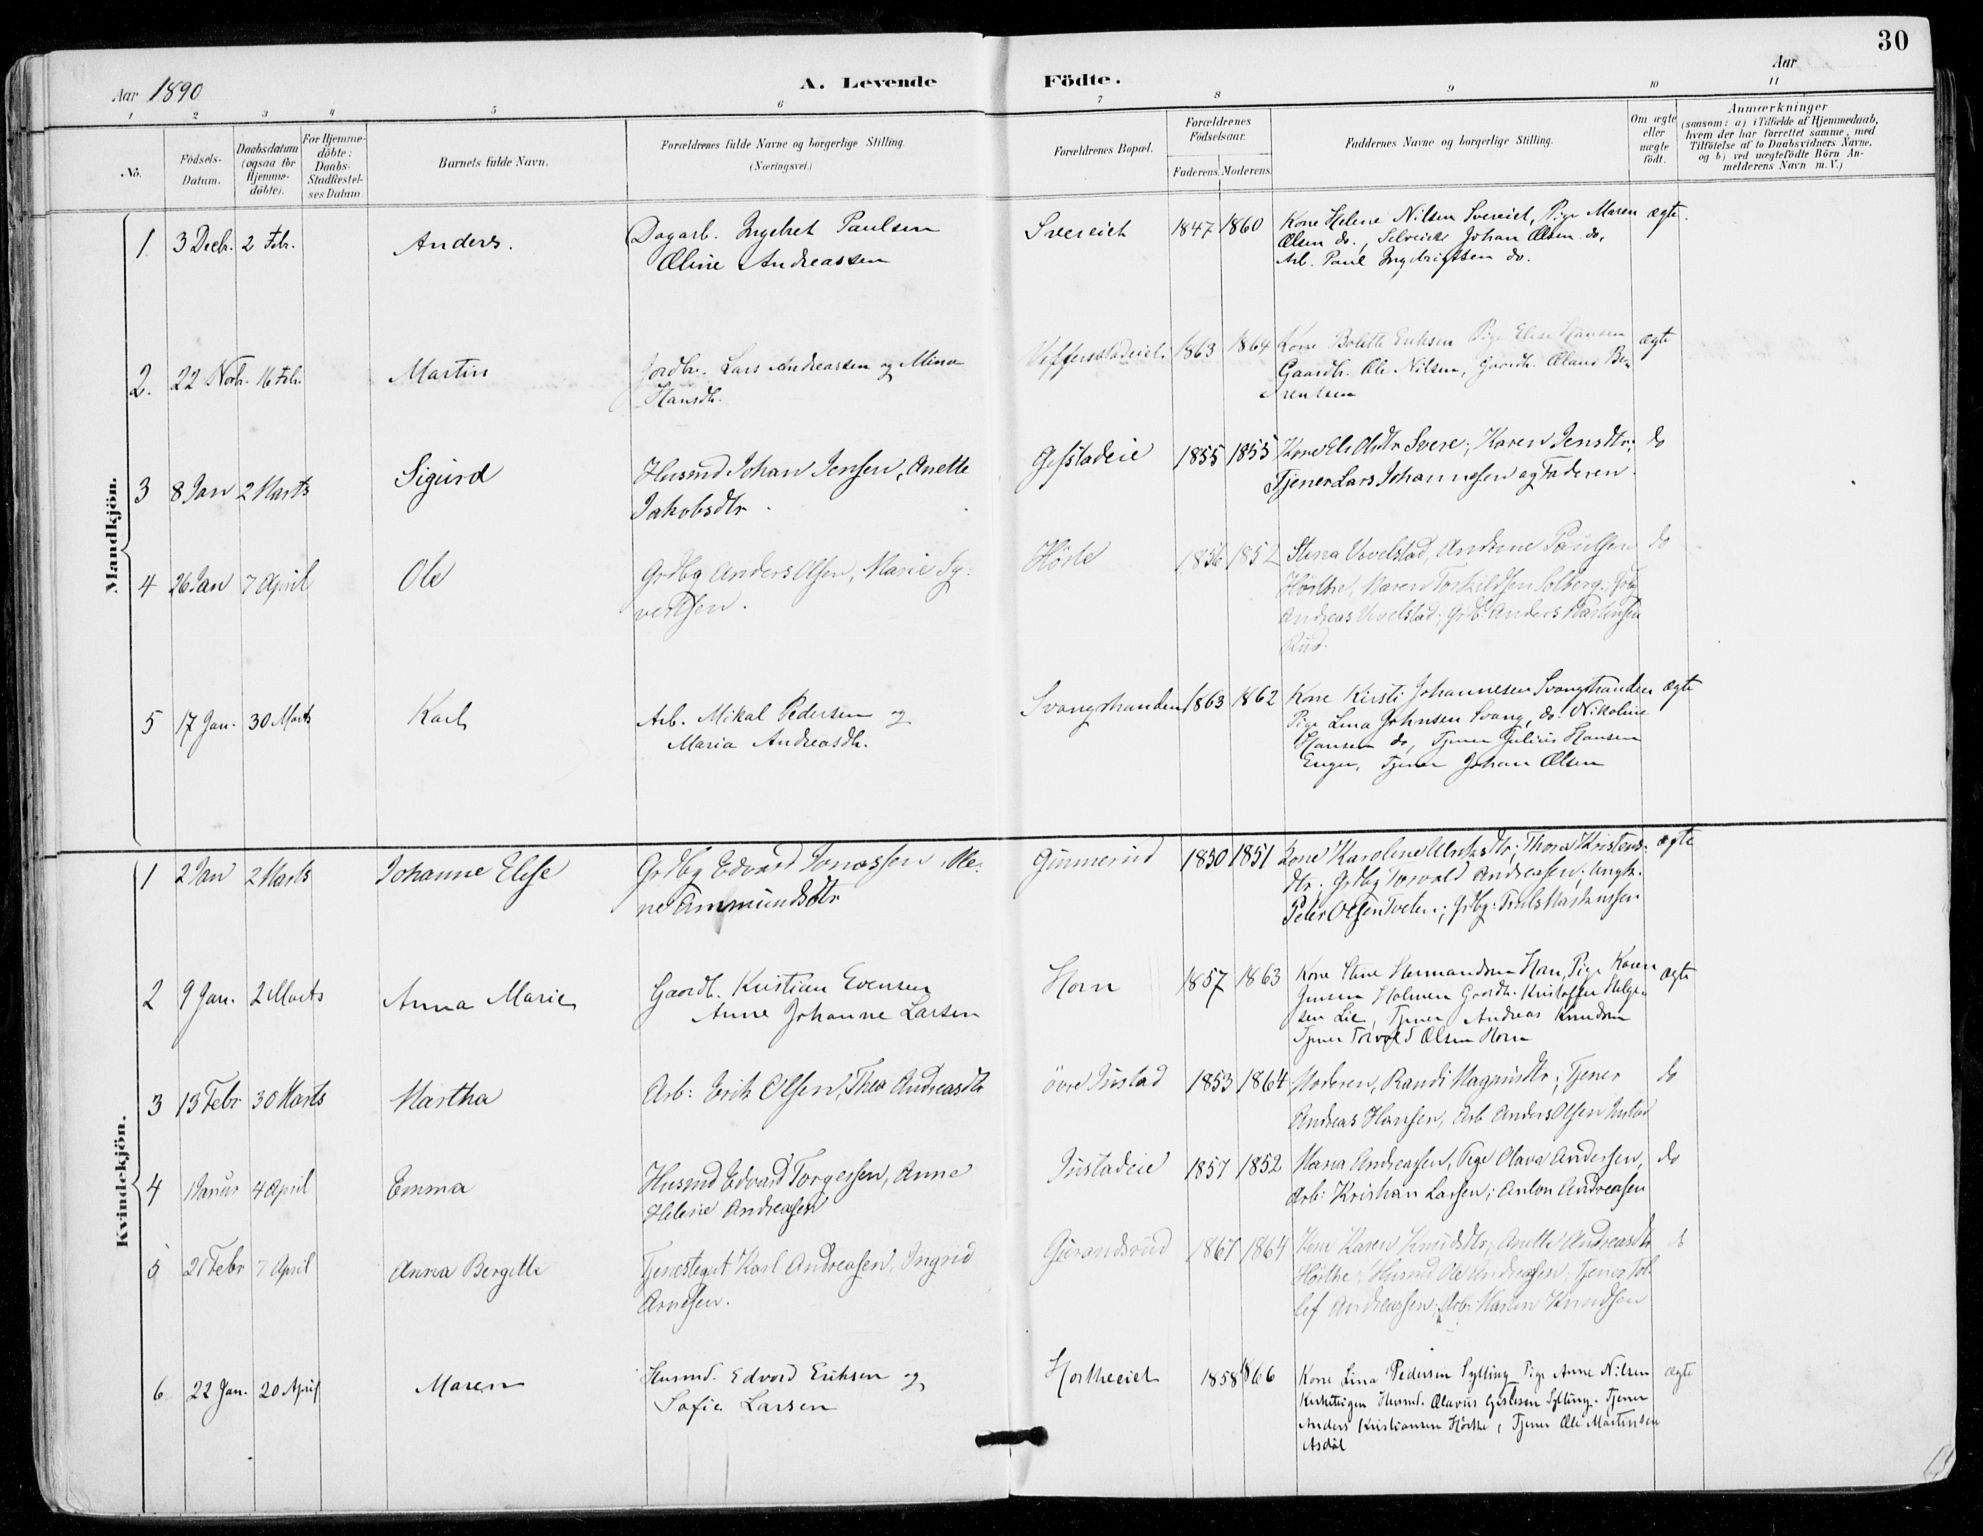 30
Aar 1890
A. Levende Födte.
Aar
1 2 3 4 5 6 7 8 9 10 11
No.
Födsels-Datum.
Daabsdatum (ogsaa for Hjemmedöbte).
For Hjemmedöbte: Daabs-Stadfæstelses Datum
Barnets fulde Navn.
Forældrenes fulde Navne og borgerlige Stilling. (Næringsvei.)
Forældrenes Bopæl.
Forældrenes Födselsaar.
Faderens. Moderens.
Faddernes Navne og borgerlige Stilling.
Om ægte eller uægte födt.
Anmærkninger
(saasom: a) i Tilfælde af Hjemmedaab,
hvem der har forrettet samme, med
Tilföielse af to Daabsvidners Navne,
og b) ved uægtefödte Börn An-
melderens Navn m. V.)
Mandkjön.
1 3 Decbr. 2 Febr. Anders. Dagarb. Ingebret Paulsen Svereiet 1847 1860 Kone Helene Nilsen Svereiet, Pige Maren ægte.
Oline Andreassen Olsen do., Johan Olsen do.
Arb. Paul Ingebrigtsen do.
2. 22 Novbr. 16 Feb. Martin Jordbr. Lars Andreassen og Mina 1863 1864 Kone Bolette Eriksen Pige Elise Hansen ægte
Hansdtr. Gaardbr. Ole Nilsen, Gaardbr. Olaus Ben
rentsen
3 8 Jan 2 Marts Sigurd Husmd Johan Jensen, Anette Gefstadeie 1855 1855 Kone Svere; Karen Jensdtr; do
Jakobsdtr. Tjener Lars Johannessen og Faderen.
4 26 Jan 7 April Ole Grdbg Anders Olsen, Marie Sy- Hörte 1856 1852 Stina Vivelstad, Andrine Paulsen do
vertsen. Hörthe, Maren Torkildsen Solberg;
Andreas Vivelstad; Grdb Anders Martinsen
Rud.
5 17 Jan. 30 Marts Karl Arb. Mikal Pedersen og Svangstranden 1863 1862 Kone Kirsti Johannesen Svangstranden ægte
Maria Andreasdtr. Pige Lina Johnsen Svang, do. Nikoline
Hansen do, Tjener Julius Hansen
Enger, Tjener Johan Olsen
Kvindekjön.
1 2 Jan 2 Marts Johanne Elise Grdbg Edvard Jonassen, Ma- Gunnerud 1850 1851 Kone Karoline Ulriksdtr; Thora Kristens- ægte
ne Ammundsdtr dtr; Grdbg Torvald Andreasen; Ungk.
Peter Olsen Tveten; Grdbg: Truls Martinssen
2 9 Jan. 2 Marts Anna Marie Gaardb. Kristian Evensen Horn 1857 1863 Kone Stine Hermandsen Horn, Pige Karen ægte
Anne Johanne Larsen Jensen Holmen Gaardb. Kristoffer Helge-
sen Lie, Tjener Andreas Knudsen
Tjener Torvald Olsen Horn
3 13 Febr 30 Marts Martha Arb: Erik Olsen, Thea Andreasdtr övre Justad 1853 1864 Moderen, Randi Magnusdtr; Tjener do
Andreas Hansen, Arb Anders Olsen Justad
4 1 Januar 4 April Emma Husmd Edvard Torgersen, Anne Justadeie 1857 1852 Maria Andreassen, Pige Olava Andersen, do
Helene Andreasen Arb: Kristian Larsen; Anton Andreasen
5 21 Febr 7 April Anna Bergitte Tjenestegut Karl Andreasen, Ingrid Gurandsrud 1867 1864 Kone Karen Knudsdtr; Anette Andreasdtr do
Arnesen. Hörthe; Husmd Ole Andreasen; Tjener Tol-
lef Andreassen; Arb: Martin Knudsen
6 22 Jan. 20 April Maren Husmd. Edvard Eriksen og Hortheeiet 1858 1866 Kone Lina Pedersen Sylling Pige Anne Nilsen ægte
Sofie Larsen Husmd. Olavus Gislesen Sylling. Tjener
Anders Kristiansen Hörthe, Tjener Ole Martinsen
Asdöl